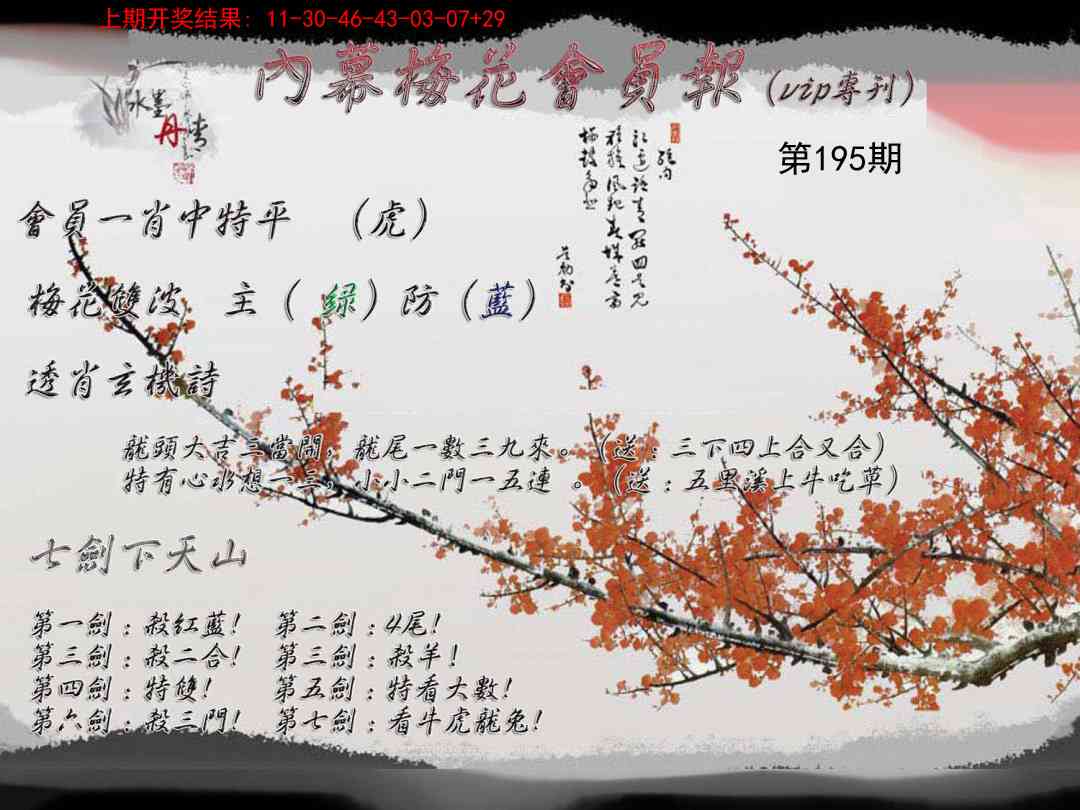 上期开奖结果: 11-30-46-43-03-07+29
內幕梅花會員報 (vip專刊)
水墨
丹情
第195期
會員一肖中特平 （虎）
梅花雙波 主（綠）防（藍）
透肖玄機詩
龍頭大吉三當開，龍尾一數三九來。（送：三下四上合又合）
特有心水想一三，小小二門一五連 。（送：五里溪上牛吃草）
七劍下天山
第一劍：殺紅藍! 第二劍：4尾!
第三劍：殺二合! 第三劍：殺羊!
第四劍：特雙! 第五劍：特看大數!
第六劍：殺三門! 第七劍：看牛虎龍兔!